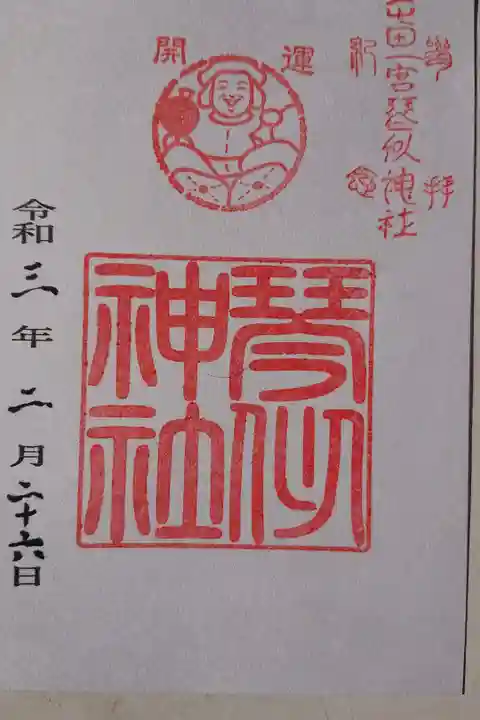 參拝
屯田一宮琴似神社
記念
開運
琴似
神社
令和三年二月二十六日